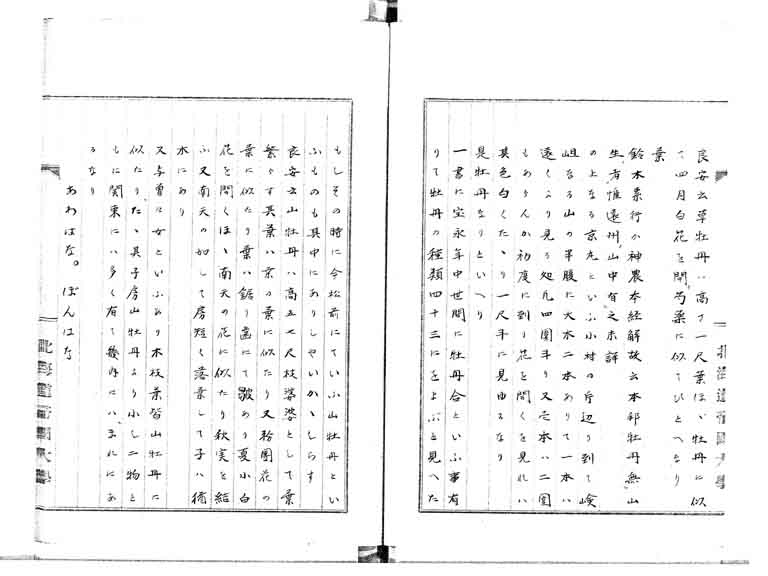 良安云草牡丹ハ高サ一尺葉ほゞ牡丹に似
て四月白花を開芍薬に似てひとへなり
葉
鈴木素行か神農本経解故云本邦牡丹無山
生者惟遠州山中有之未詳
の上なる京丸といふ小村の片辺り到て嶮
岨なる山の半腹に大木二本ありて一本ハ
遠くより見る処凡四囲斗り又壱本ハ二囲
もありんか初度に到り花を開くを見れハ
其色白くたゝり一尺半に見ゆるなり
是牡丹なりといへり
一書に宝永年中世間に牡丹合といふ事有
りて牡丹の種類四十三にをよぶと見へた
北海道帝国大学
もしその時に今松前にていふ山牡丹とい
ふものも其中にありしやいかゝしらす
良安云山牡丹ハ高五七尺枝婆娑として葉
繁らす其葉ハ京の葉に似たり又粉團花の
葉に似たり葉ハ鋸歯にて皺あり夏小白
花を開くほゝ南天の花に似たり秋実を結
ふ又南天の如して房短く落葉して子ハ猶
木にあり
又与曽に女といふあり木枝葉皆山牡丹に
似たりたゝ其子房山牡丹より小し二物と
もに関東にハ多く有て畿内にハまれにあ
るなり
あわはな。ぼんはな
北海道帝国大学